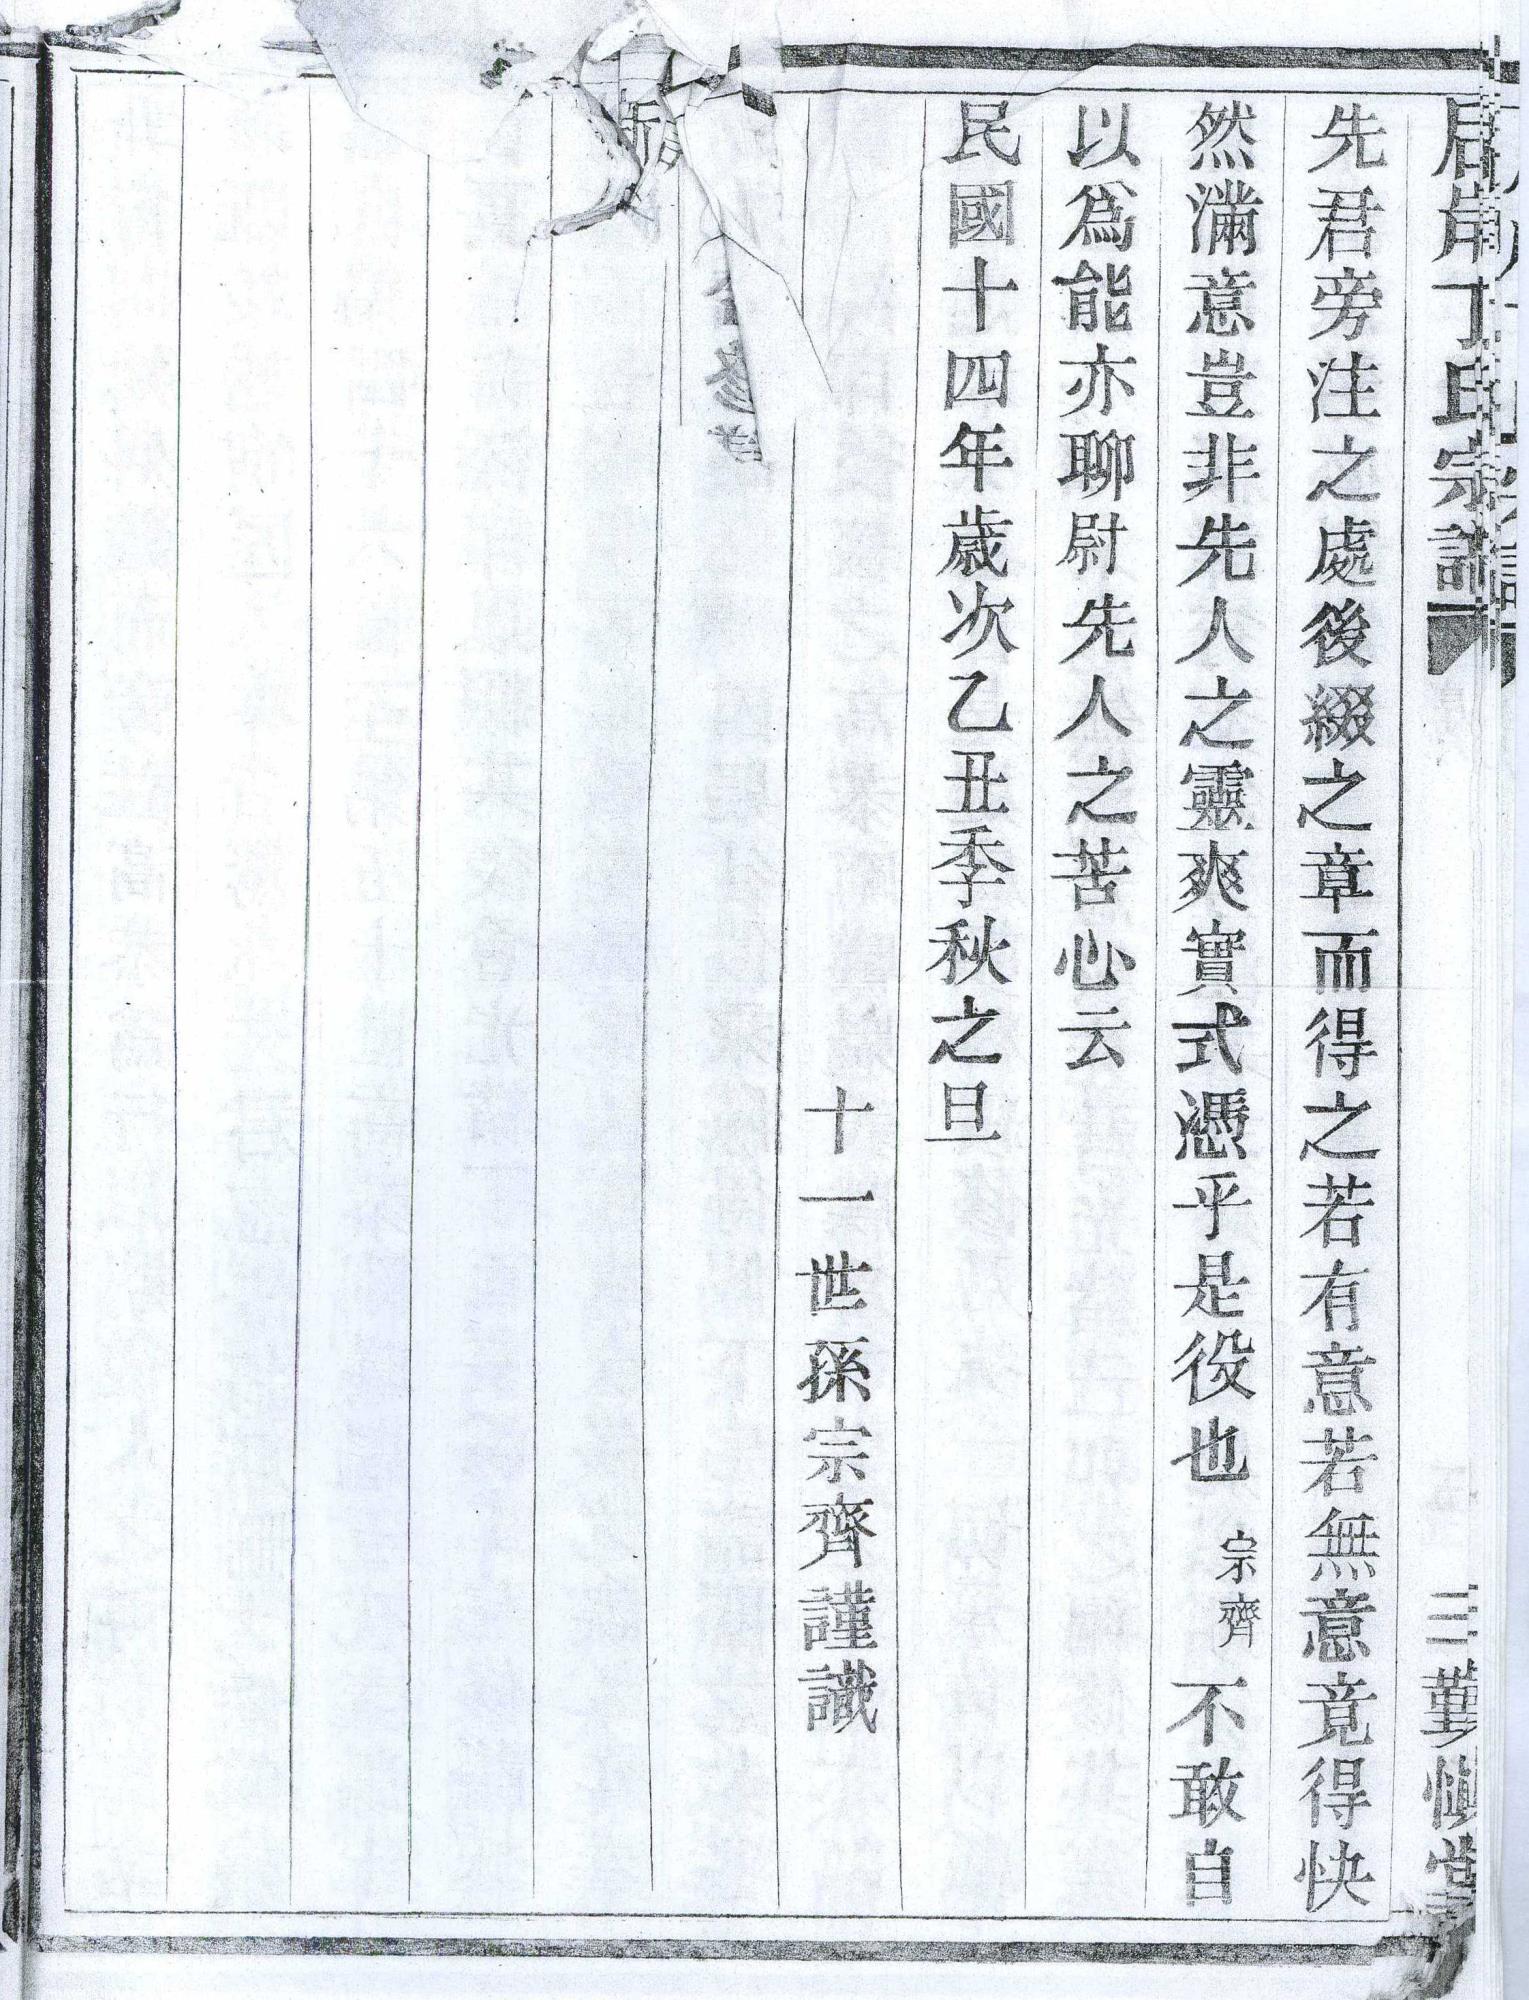 岸丁氏宗譜
三勤愼堂
先君旁注之處後綴之章而得之若有意若無意竟得快
然滿意豈非先人之靈爽實式憑乎是役也宗齊不敢自
以爲能亦聊尉先人之苦心云
民國十四年歲次乙丑季秋之旦
十一世孫宗齊謹識